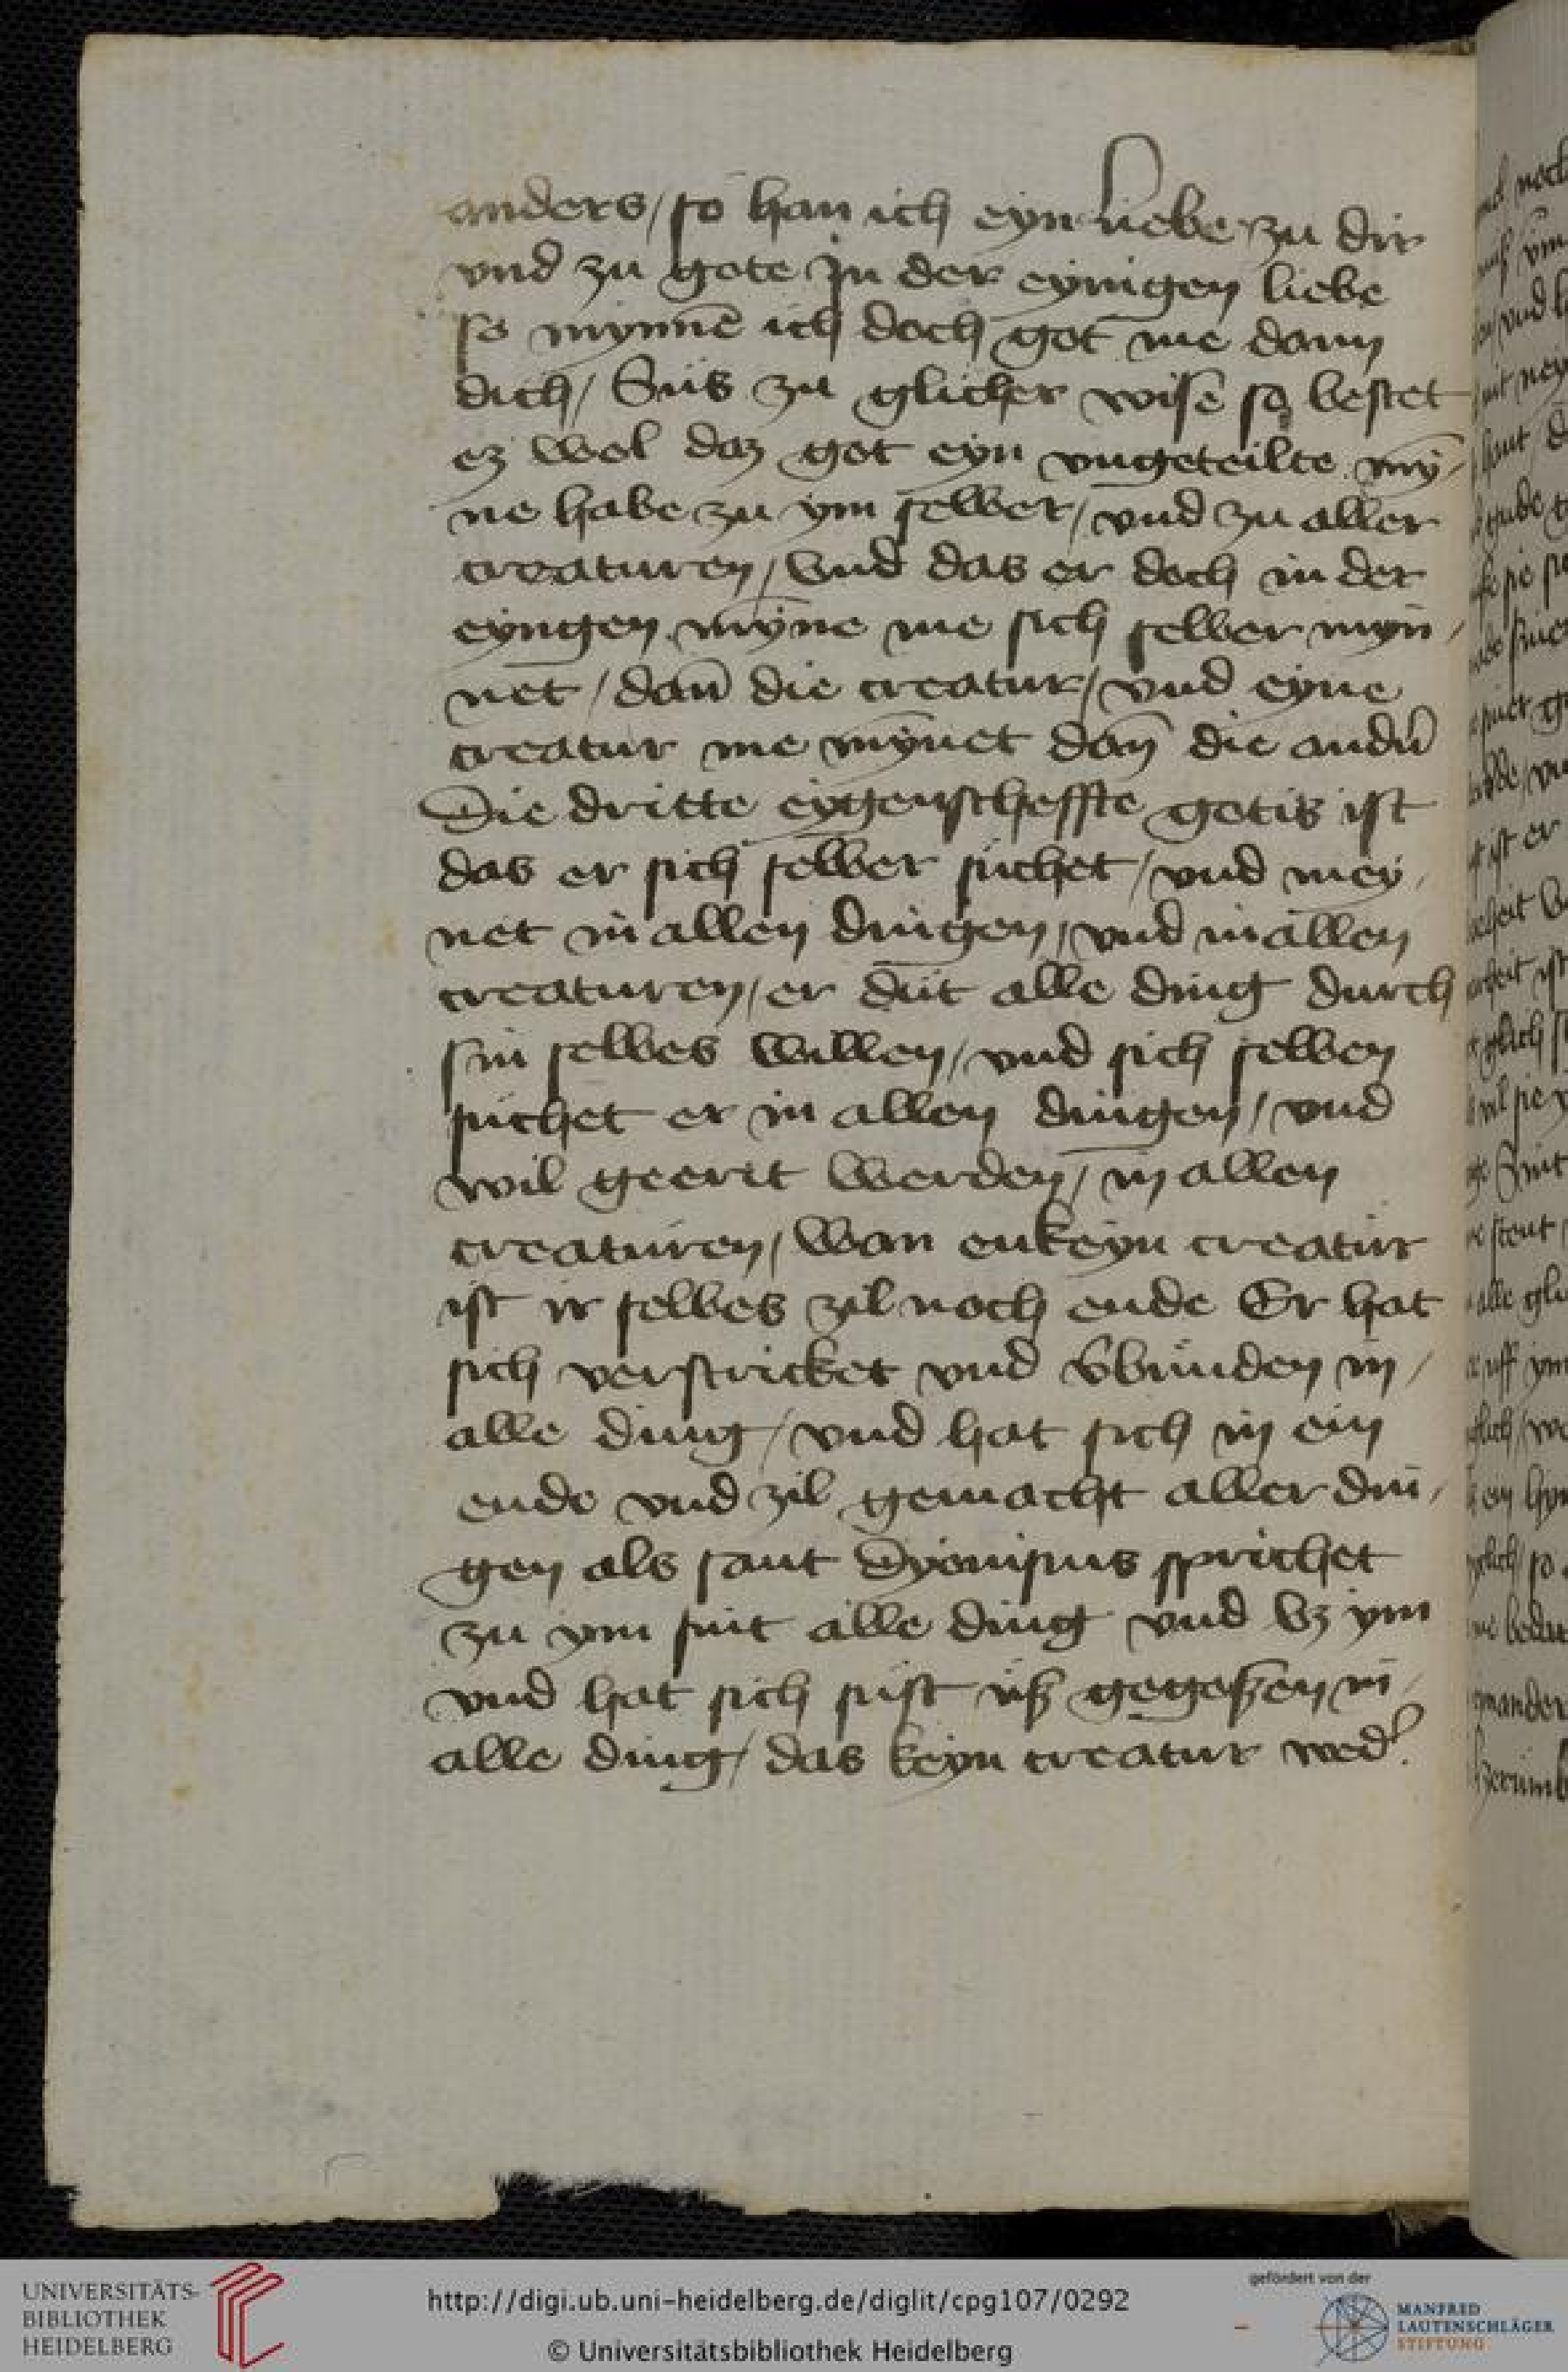 anders / so han ich eyn liebe zu dir
vnd zu gote Jn der eynigen liebe
so mynnē ich doch got me dann
dich / Sus zu glicher wise so bestet
ez wol daz got eyn vngeteilte mȳ-
ne habe zu ym selber / vnd zu aller
creaturen / Vnd das er doch in der
eyngen mȳne me sich selber myn-
net / dan̄ die creatur / vnd eyne
creatur me mȳnet dan̄ die andn̄
Die dritte eygenscheffte gotis ist
das er sich selber suchet / vnd mey-
net in allen dingen / vnd in allen
creaturen / er dut alle ding durch
sin selbes willen / vnd sich selben
suchet er in allen dingen / vnd
wil geerit werden / in allen
creaturen / Wan enkeyn creatur
ist ir selbes zil noch ende Er hat
sich verstricket vnd v̄bunden in /
alle ding / vnd hat sich in ein
ende vnd zil gemacht aller din-
gen als sant Dyonisius sprichet
zu ym sint alle ding vnd vz ym
vnd hat sich sust uß gegoßen in
alle ding / das keyn creatur wed̄
UNIVERSITÄTS-
BIBLIOTHEK
HEIDELBERG
http://digi.ub.uni-heidelberg.de/diglit/cpg107/0292
© Universitätsbibliothek Heidelberg
gefördert von der
MANFRED
LAUTENSCHLÄGER
STIFTUNG